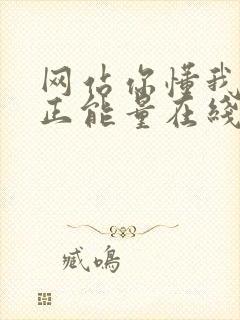 网站你懂我
正能量在线
臧鸣